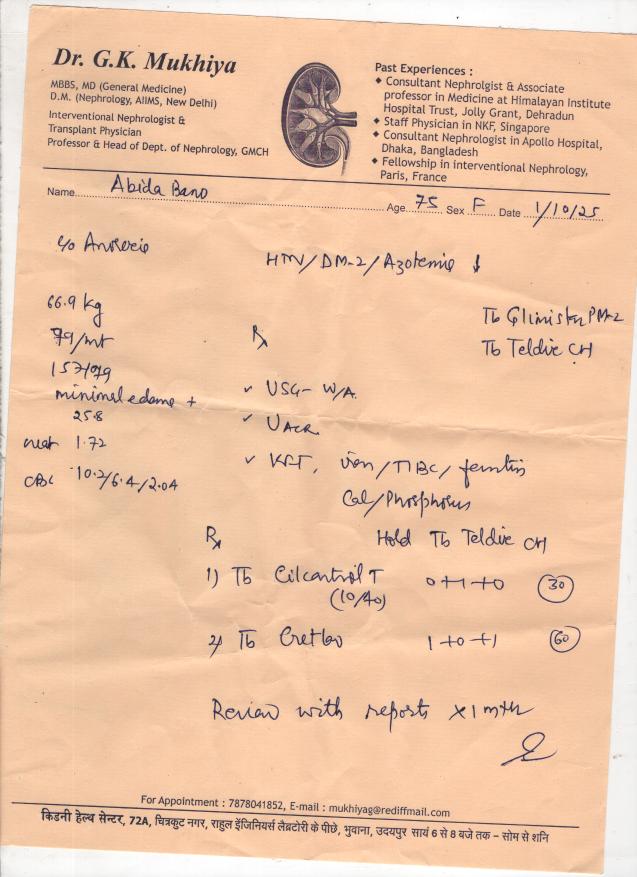 Dr. G.K. Mukhiya
MBBS, MD (General Medicine)
D.M. (Nephrology, AIIMS, New Delhi)
Interventional Nephrologist &
Transplant Physician
Professor & Head of Dept. of Nephrology, GMCH
Past Experiences :
◆ Consultant Nephrolgist & Associate
professor in Medicine at Himalayan Institute
Hospital Trust, Jolly Grant, Dehradun
◆ Staff Physician in NKF, Singapore
◆ Consultant Nephrologist in Apollo Hospital,
Dhaka, Bangladesh
◆ Fellowship in interventional Nephrology,
Paris, France
Name Abida Bano Age 75 Sex F Date 1/10/25
c/o
HTN/DM-2/Azotemia ↓
66.9 kg
Tb PM-2
79/mt
Rx
Tb CH
minimal edema +
✓ USG- W/A
25.8
✓ UACR
creat 1.72
✓ KFT, iron/TIBC/ferritin
CBC 10.2/6.4/2.04
Cal/Phosphorus
Rx
Hold Tb CH
1) Tb Cilcontrol T 0+1+0 30
(10/40)
2) Tb 1+0+1 60
Review with reports x 1 mth
For Appointment : 7878041852, E-mail : mukhiyag@rediffmail.com
किडनी हेल्थ सेन्टर, 72A, चित्रकुट नगर, राहुल इंजिनियर्स लैब्रटोरी के पीछे, भुवाना, उदयपुर सायं 6 से 8 बजे तक – सोम से शनि